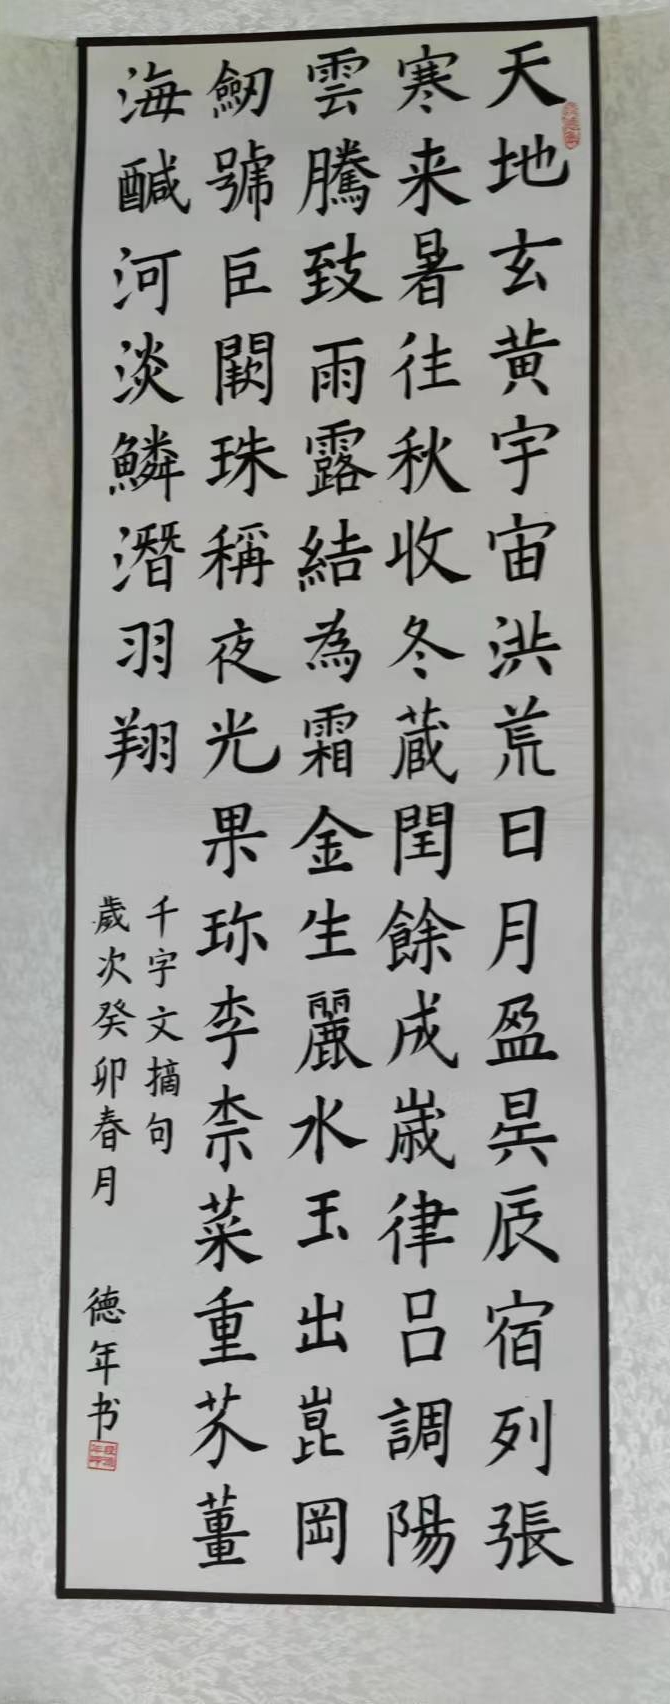 天地玄黄宇宙洪荒日月盈昃辰宿列張
寒来暑往秋收冬蔵閏餘成歳律吕調陽
雲騰致雨露結為霜金生麗水玉出崑岡
劒號巨闕珠稱夜光果珎李柰菜重芥薑
海醎河淡鱗潛羽翔
千字文摘句
歲次癸卯春月
德年书